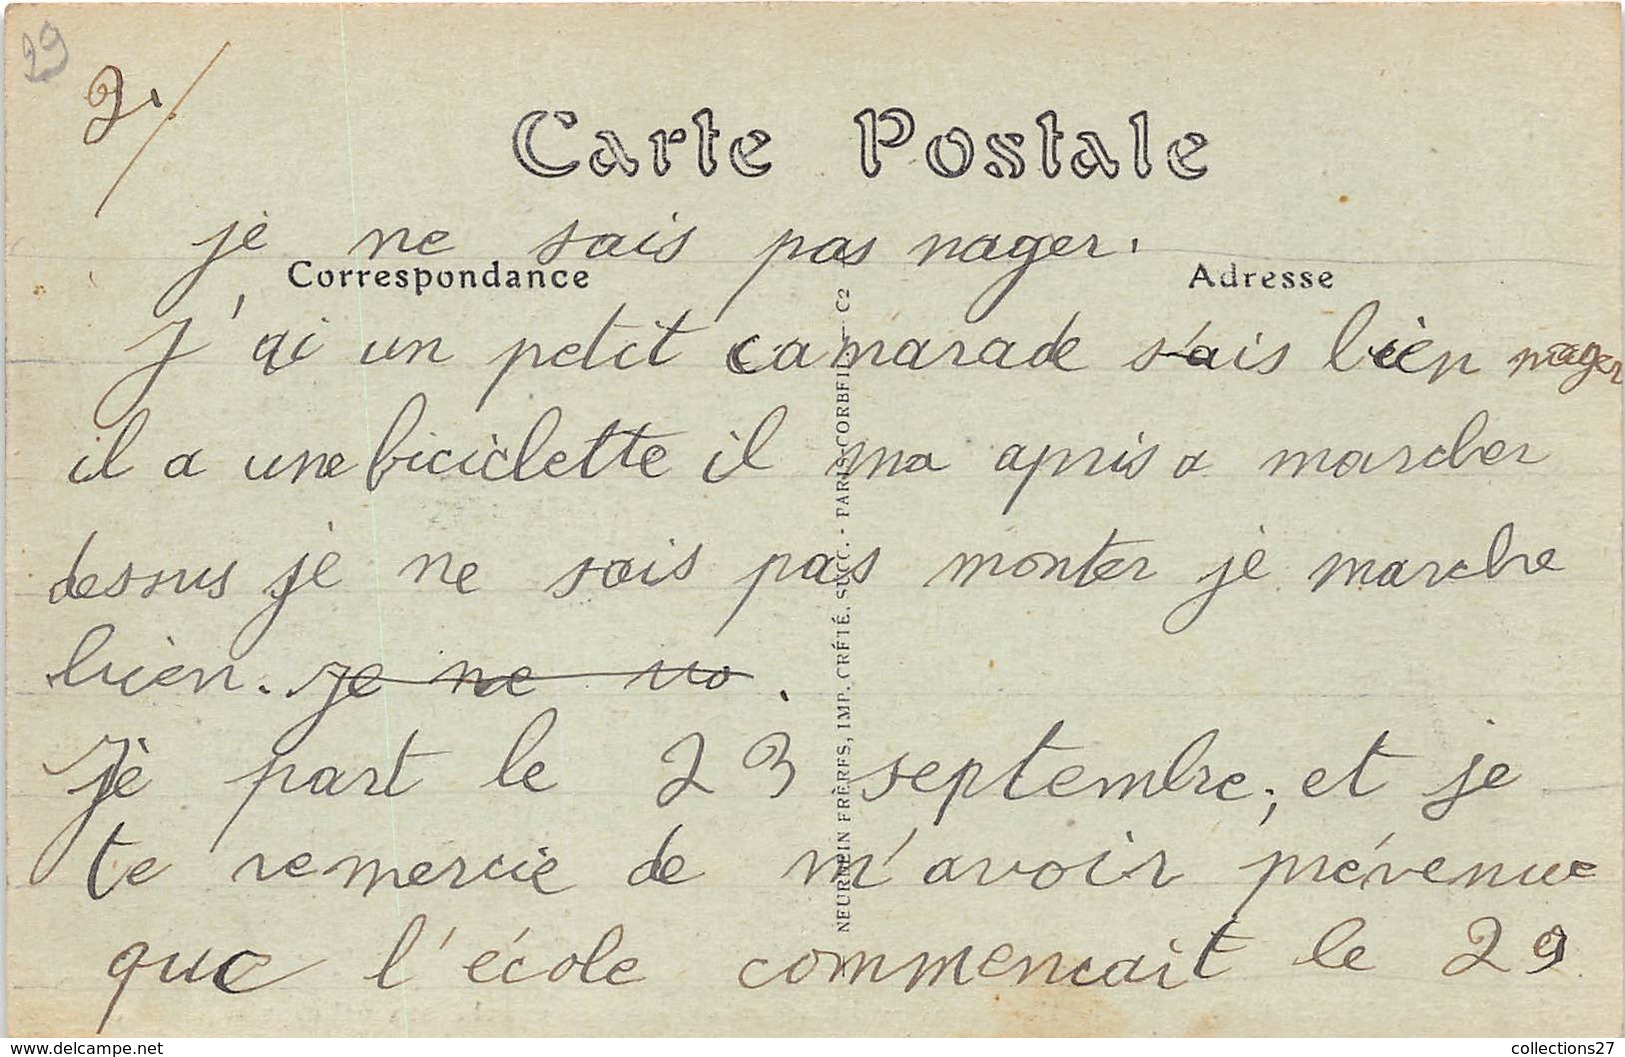 29
2/
Carte Postale
je ne sais pas nager.
Correspondance
Adresse
J'ai un petit camarade s'ais bien nager
il a une biciclette il ma apris a marcher
dessus je ne sais pas monter je marche
bien. je ne
Je part le 23 septembre, et je
te remercie de m'avoir prévenue
que l'école commencait le 29
NEURDEIN FRÈRES, IMP. CRÉTÉ, SUCC. - PARIS-CORBEIL - C2
www.delcampe.net
collections27